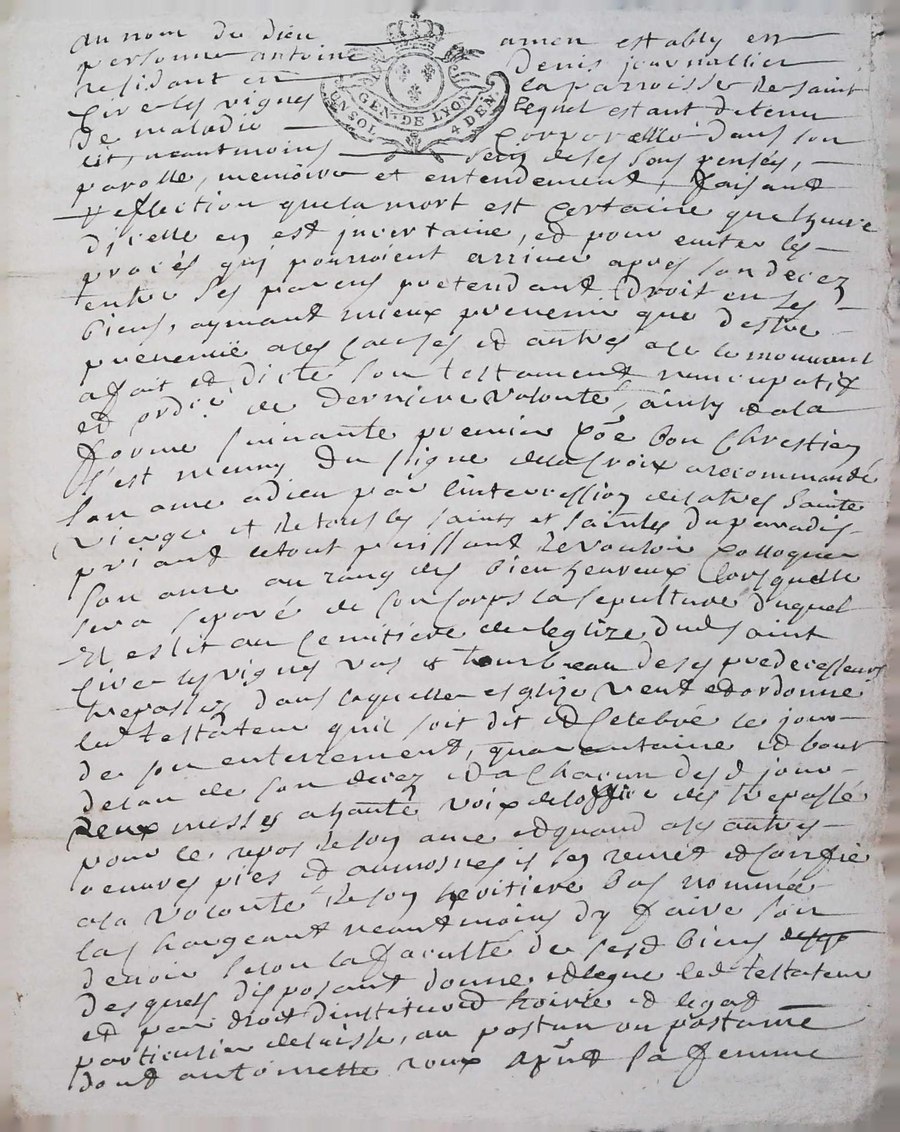 au nom de dieu amen estably en
personne antoine denis journallier
residant en la parroisse de saint
Cire les vignes lequel estant detenu
de maladie corporelle dans son
lit, neantmoins sein de ses sens pensées,
parolle, memoire et entendement, faisant
reflection que la mort est certaine que lheure
dicelle en est incertaine, et pour euiter les
procés qui pourroient arriuer apres son decez
entre ses parens pretendant droit en ses
biens, aymant mieux preuenir que destre
preuenüe a ces causes et autres a ce le mouuant
a fait et dicté son testament nuncupatif
et ordre de derniere volonté, ainsy et a la
forme suiuante premier cõe bon Chrestien
s'est muny du signe de la Croix a recommandé
son ame a dieu par l'intercession de la tres sainte
vierge et de tous les saints et saintes du paradis
priant le tout puissant de vouloir colloquer
son ame au rang des bien heureux lors quelle
sera separé de son corps la sepulture duquel
Il eslit au Cemitiere de leglize dud saint
Cire les vignes vas et tombeau de ses predecesseurs
trepassés dans laquelle esglize veut et ordonne
led testateur quil soit dit et Celebré le jour
de son enterrement, quarantaine et bout
de lan de son decez et a Chacun des d jours
deux messes a haute voix de loffice des trepassé
pour le repos de son ame et quand a ses autres
oeuures pies et aumosnes il sen remet et confie
a la volonté de son heritiere bas nommée
la chargeant neantmoins dy faire son
deuoir selon la faculté de sesd biens
desquels disposant donne et legue led testateur
et par droit dinstitution d hoirie et legat
particulier delaisse, au postun ou postume
dont antoinette roux apñt sa femme